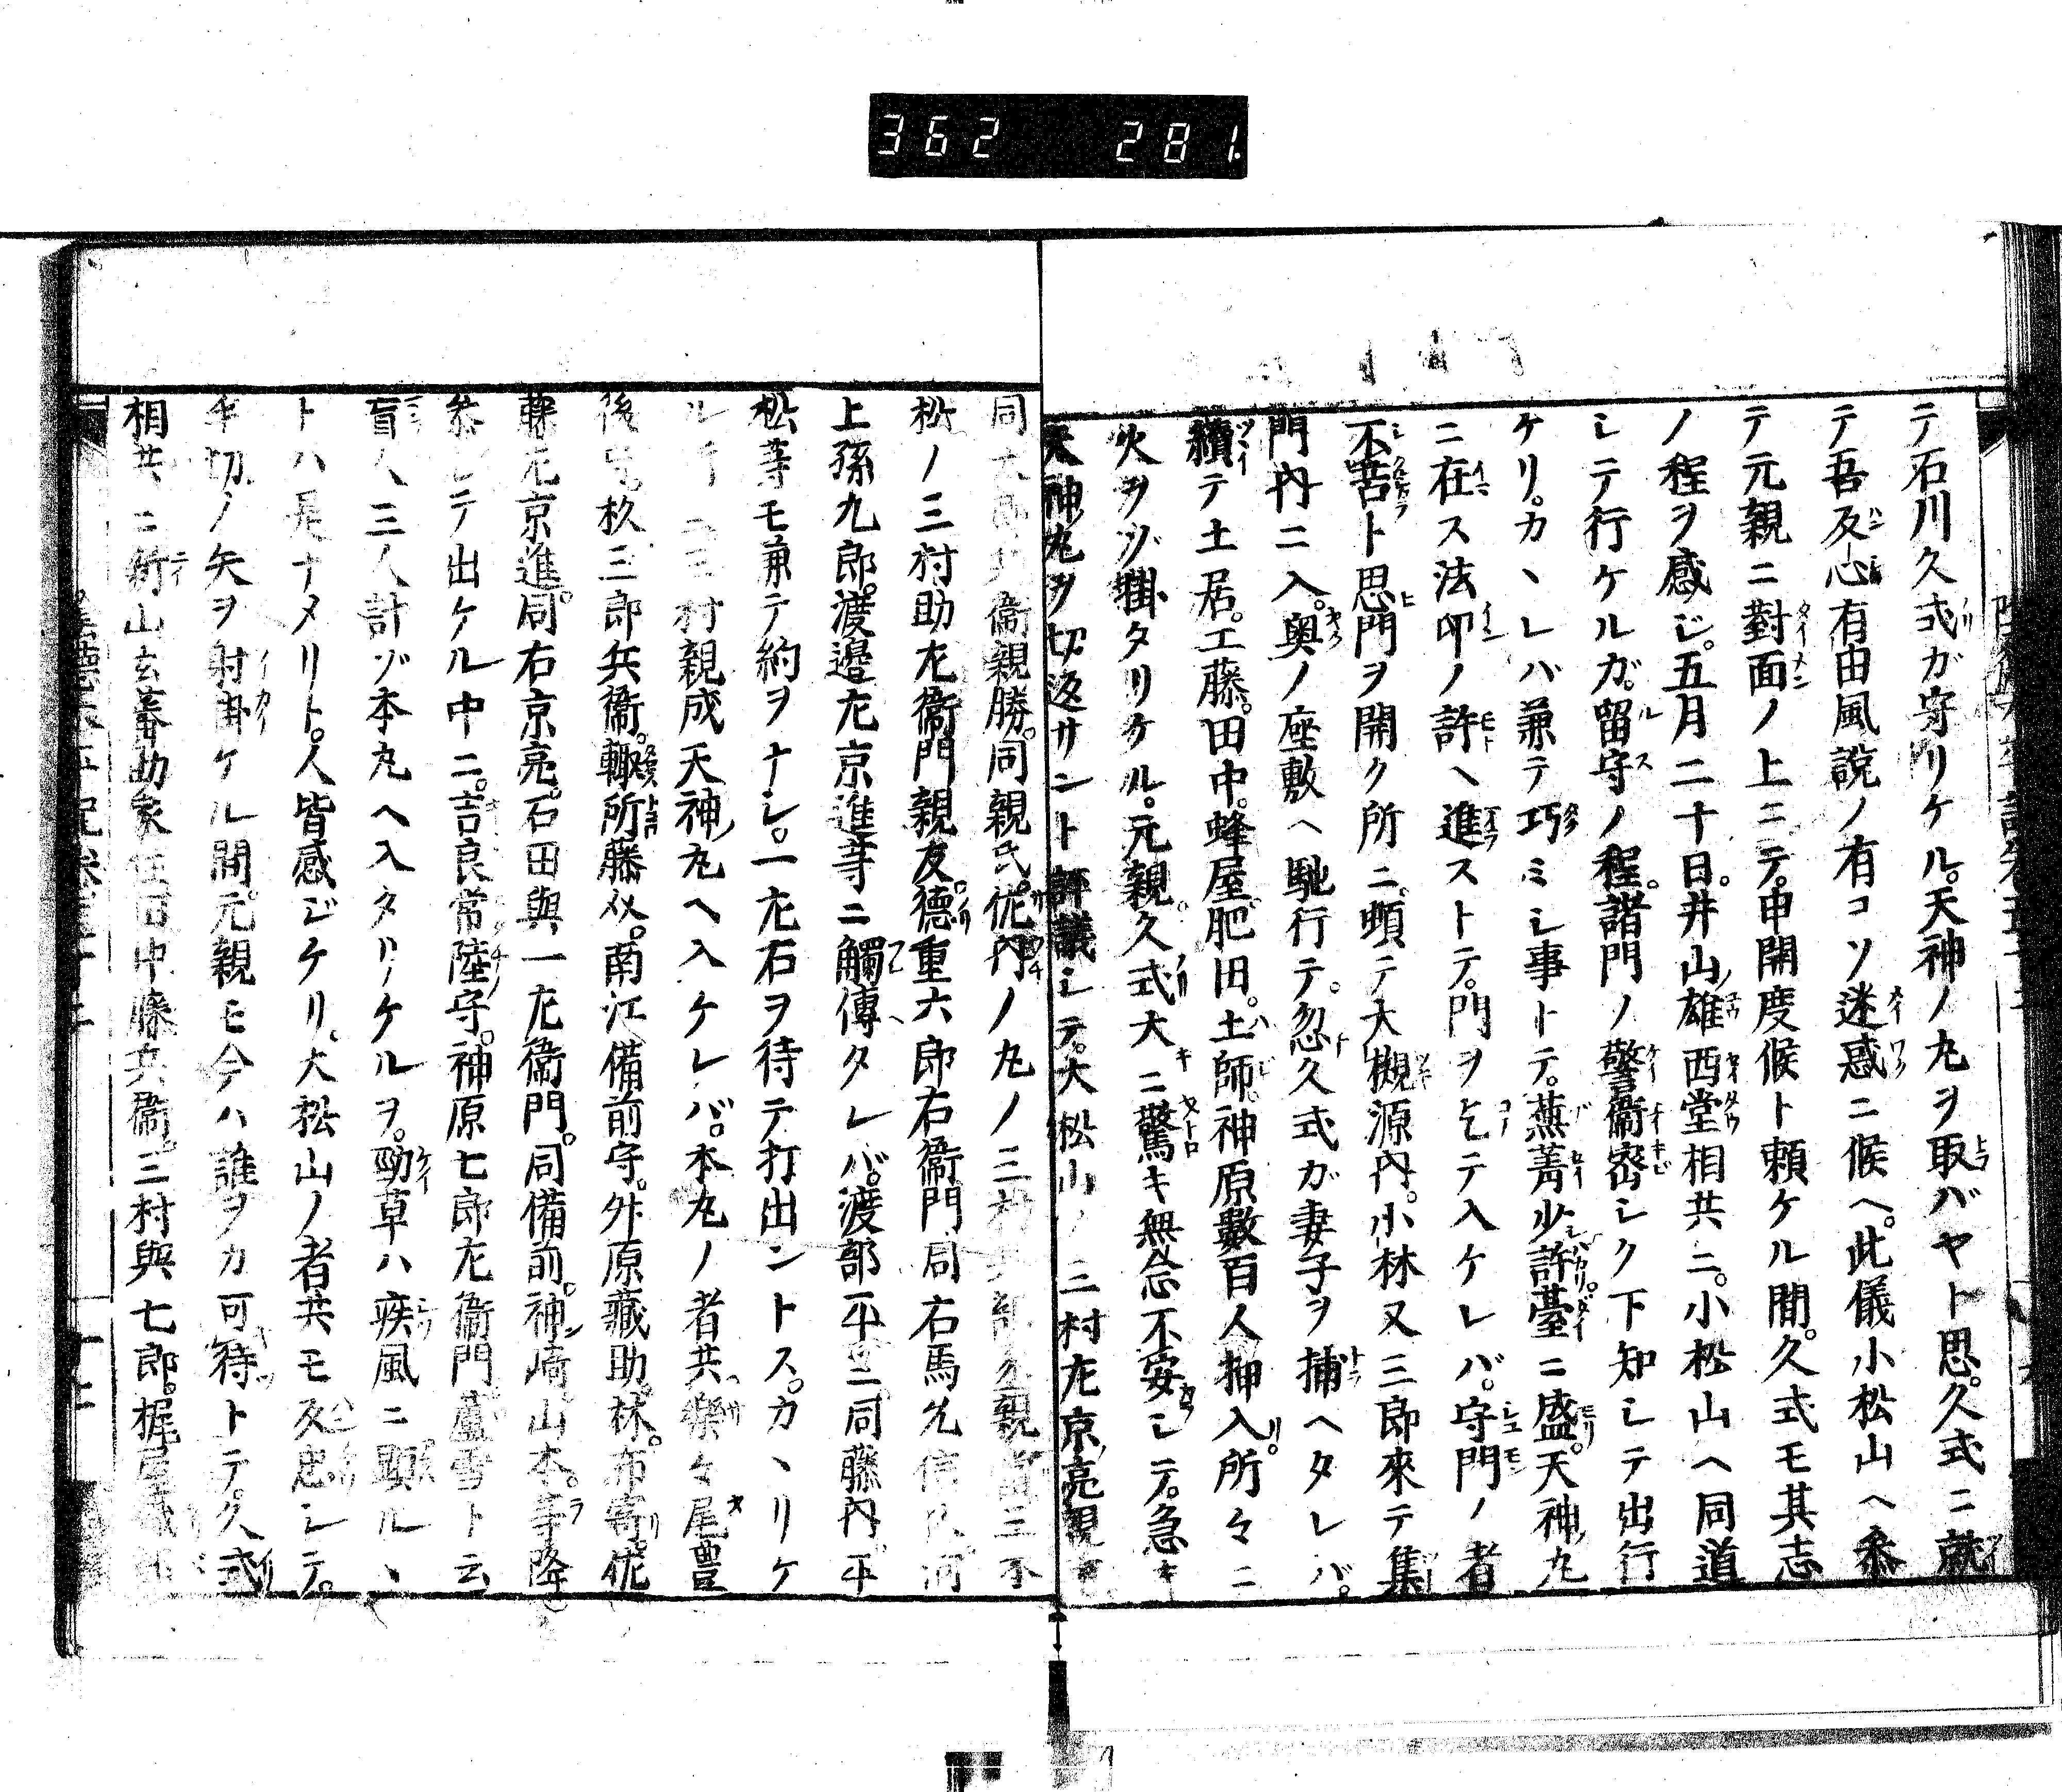 362 281.
ニテ石川久式ガ守リケル。天神ノ丸ヲ取バヤト思。久式ニ就
テ吾反心有由風說ノ有コソ迷惑ニ候ヘ。此儀小松山ヘ參
テ元親ニ對面ノ上ニテ。申開度候ト頼ケル間。久式モ其志
ノ程ヲ感ジ。五月二十日。井山雄西堂相共ニ。小松山ヘ同道
シテ行ケルガ。留守ノ程。諸門ノ警衞密シク下知シテ出行
ケリ。カヽレバ兼テ巧ミシ事トテ。蕪菁少許臺ニ盛。天神ノ丸
ニ在ス法印ノ許ヘ進ストテ。門ヲ乞テ入ケレバ。守門ノ者
不苦ト思門ヲ開ク所ニ。頓テ大槻源內。小林又三郎來テ集
門內ニ入。奧ノ座敷ヘ馳行テ。忽久式ガ妻子ヲ捕ヘタレバ。
續テ土居。工藤。田中。蜂屋。肥田。土師。神原數百人押入。所々ニ
火ヲゾ掛タリケル。元親。久式大ニ驚キ無念不安シテ。急キ
天神ノ丸ヲ切返サント評議シテ。大松山ノ三村左京亮親
同 衞親勝。同親氏。佐內ノ丸ノ三村 親
松ノ三村助左衞門親友。德重六郎右衞門同右馬允信
上孫九郎。渡邉左京進等ニ觸傳タレバ。渡部平 同藤內平
松等モ兼テ約ヲナシ。一左右ヲ待テ打出ントス。カヽリケ
ル 三村親成天神ノ丸ヘ入ケレバ。本丸ノ者共樂々尾豊
後守。杦三郎兵衞。輙所藤 。南江備前守。舛原藏助。林。布寄。佐
左京進。同右京亮。石田與一左衞門。同備前。神崎。山本。等降
參シテ出ケル中ニ。吉良常陸守。神原七郎左衞門蘆雪ト云
盲人三人計ゾ本丸ヘ入タリケルヲ。勁草ハ疾風ニ顯ルヽ
トハ是ナメリト。人皆感ジケリ。大松山ノ者共モ反忠シテ。
半切ノ矢ヲ射掛ケル間。元親モ今ハ誰ヲカ可待トテ。久式
相共ニ 山玄蕃助 田中藤兵衞。三村與七郎。梶屋